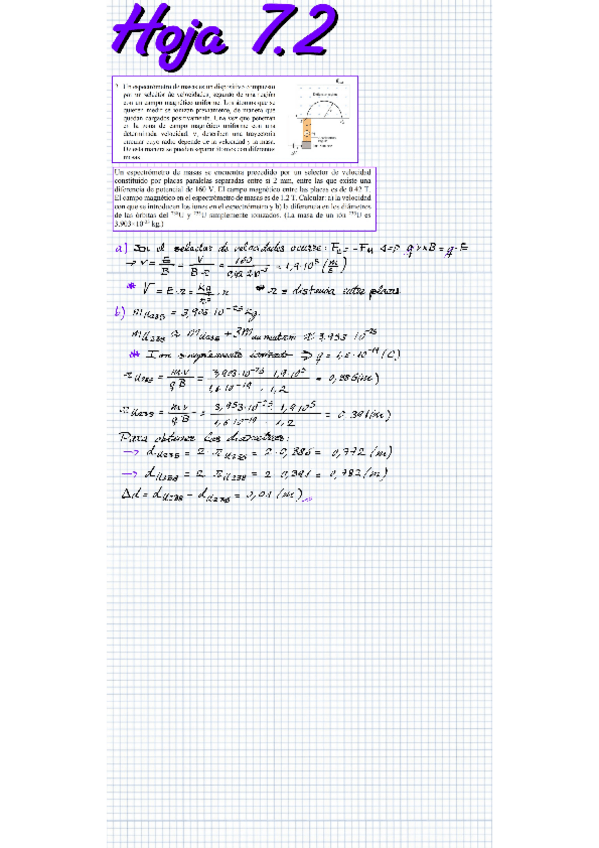 Hoja 7.2
Un espectrómetro de masas es un dispositivo compuesto
por un selector de velocidades, seguido de una región
con un campo magnético uniforme. Los átomos que se
quieren medir se ionizan previamente, de manera que
quedan cargados positivamente. Una vez que penetran
en la zona de campo magnético uniforme con una
determinada velocidad, v, describen una trayectoria
circular cuyo radio depende de la velocidad y la masa.
De esta manera se pueden separar átomos con diferentes
masas.
Un espectrómetro de masas se encuentra precedido por un selector de velocidad
constituido por placas paralelas separadas entre sí 2 mm, entre las que existe una
diferencia de potencial de 160 V. El campo magnético entre las placas es de 0.42 T.
El campo magnético en el espectrómetro de masas es de 1.2 T. Calcular: a) la velocidad
con que se introducen los iones en el espectrómetro y b) la diferencia en los diámetros
de las órbitas del ²³⁸U y ²³⁵U simplemente ionizados. (La masa de un ión ²³⁵U es
3.903·10⁻²⁵ kg.)
a) el selector de velocidades ocurre: = - <=> q·v×B = q·E
→ v = E/B = V/(B·r) = 160/(0,42·2·10⁻³) = 1,9·10⁵ (m/s)
* V = E·r = * r = distancia entre placas
b) m U235 = 3,903·10⁻²⁵ kg.
m U238 ≈ m U235 + 3m de neutrón ≈ 3.953·10⁻²⁵
* Ion simplemente ionizado ⇒ q = 1,6·10⁻¹⁹ (C)
r U235 = m·v/(q·B) = 3,903·10⁻²⁵·1,9·10⁵/(1,6·10⁻¹⁹·1,2) = 0,386 (m)
r U238 = m·v/(q·B) = 3,953·10⁻²⁵·1,9·10⁵/(1,6·10⁻¹⁹·1,2) = 0.391 (m)
Para obtener los diametros:
→ d U235 = 2·r U235 = 2·0,386 = 0,772 (m)
→ d U238 = 2·r U238 = 2·0,391 = 0,782 (m)
Δd = d U238 - d U235 = 0,01 (m)